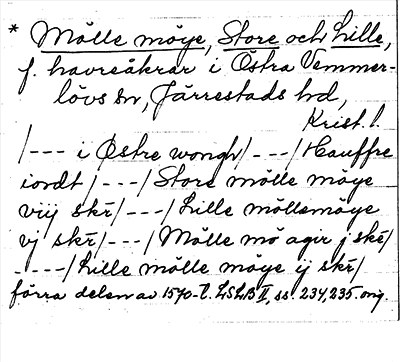 * Mölle möye, Store och Lille,
f. havreåkrar i Östra Vemmer-
lövs sn, Järrestads hd,
Krist. l.
/--- i Østre wongh/---/Hauffre
iordt/---/Store mölle möye
viij skr/---/Lille möllemöye
vj skr/---/Mölle mö agir j skr/
----/Lille mölle möye ij skr/
förra delen av 1570-t. LSLB II, ss. 234, 235. orig.